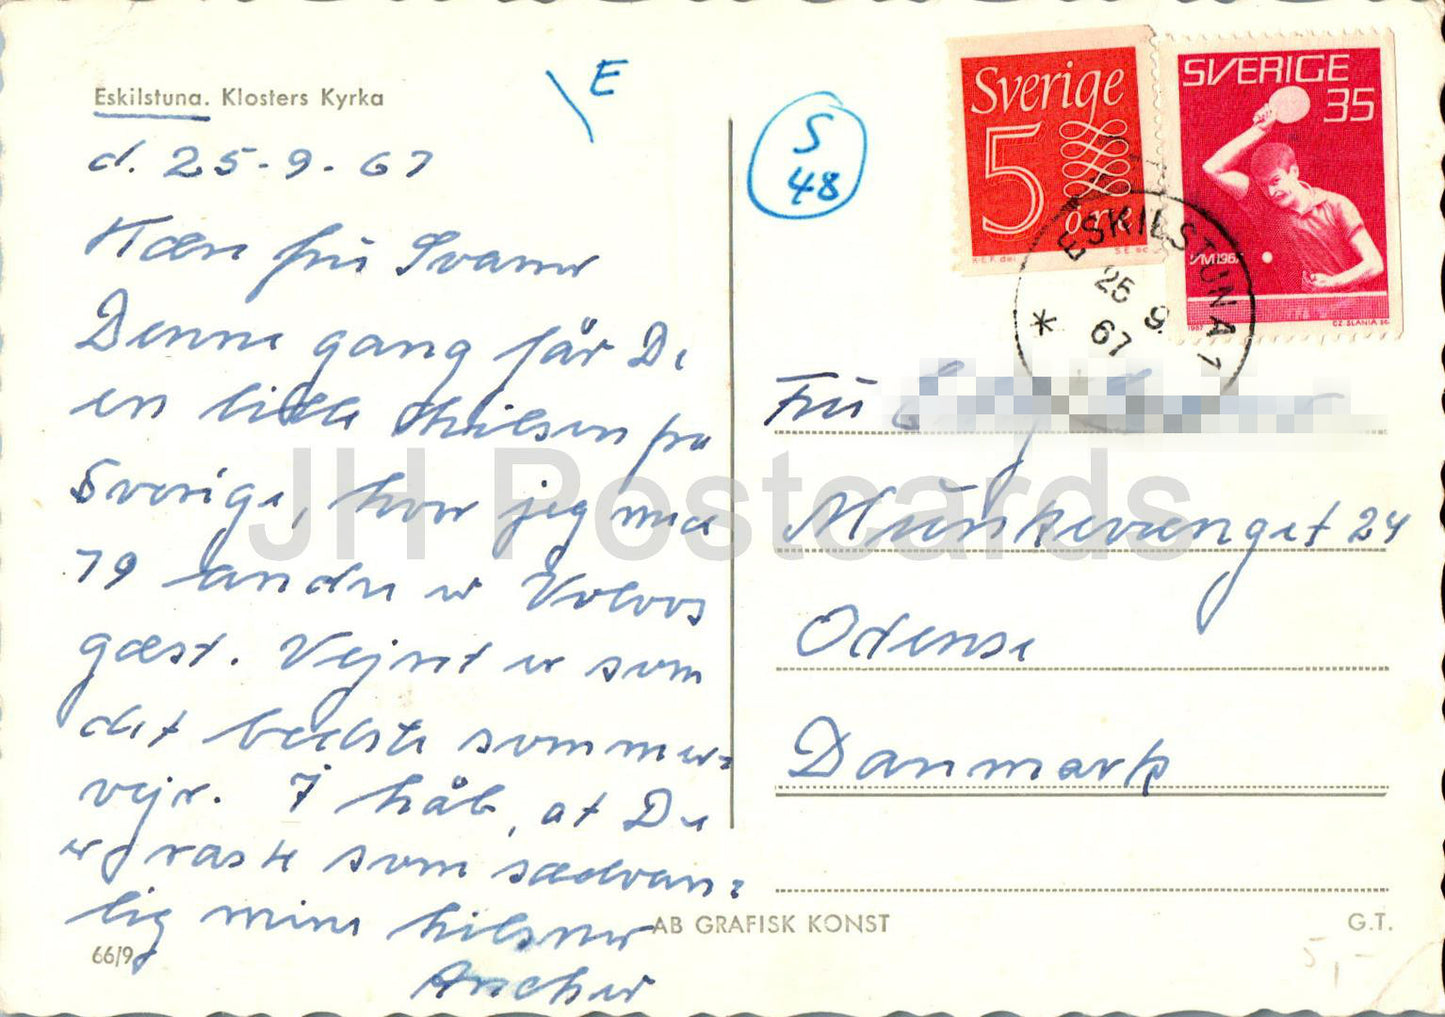 Eskilstuna. Klosters Kyrka
E
S
48
d. 25-9-67
Kære fru Svaner
Denne gang får De
en lille hilsen fra
Sverige, hvor jeg med
79 andre er Volvos
gæst. Vejret er som
det bedste sommer=
vejr. I håb, at De
er raske som sædvan=
lig mine hilsner
Ancher
66/9
Sverige
5
öre
SVERIGE
35
VM1967
1967
CZ. SLANIA SC
ESKILSTUNA 1
25 9.
67
Fru
Munkevænget 24
Odense
Danmark
AB GRAFISK KONST
G.T.
5,-
JH Postcards